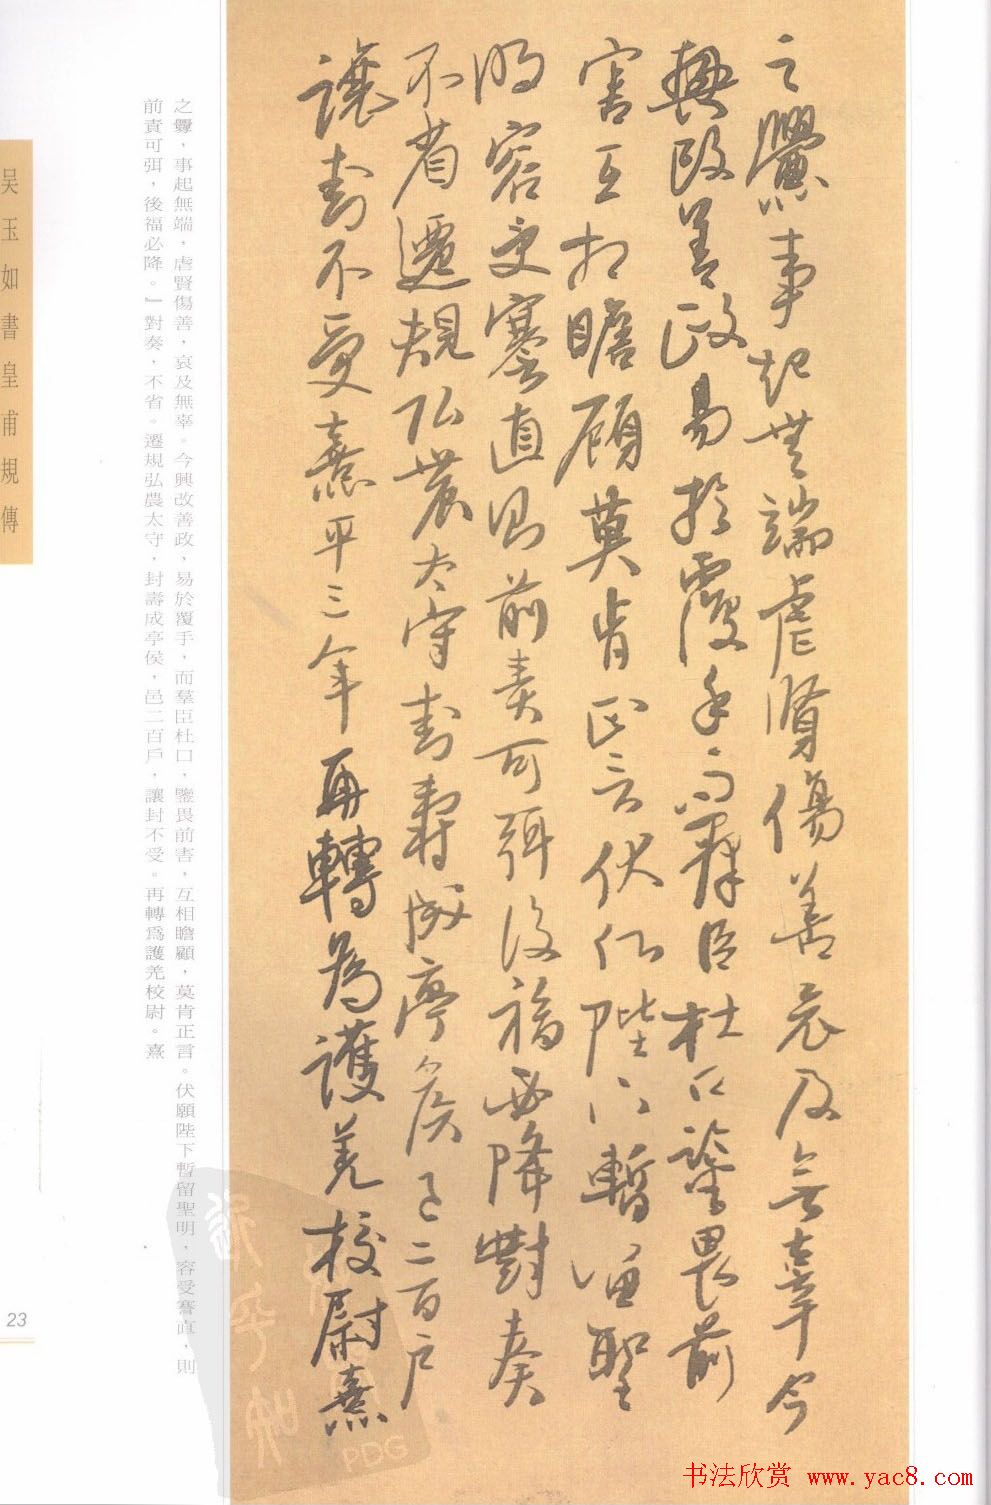 之釁事起無端虐賢傷善哀及無辜今
興改善政易於覆手而羣臣杜口鑒畏前
害互相瞻顧莫肯正言伏願陛下暫留聖
明容受謇直則前責可弭後福必降對奏
不省遷規弘農太守封壽成亭侯邑二百戶
讓封不受熹平三年再轉為護羌校尉熹
之釁，事起無端，虐賢傷善，哀及無辜。今興改善政，易於覆手，而羣臣杜口，鑒畏前害，互相瞻顧，莫肯正言。伏願陛下暫留聖明，容受謇直，則
前責可弭，後福必降。』對奏，不省。遷規弘農太守，封壽成亭侯，邑二百戶，讓封不受。再轉爲護羌校尉。熹
吴玉如書皇甫規傳
23
PDG
书法欣赏 www.yac8.com